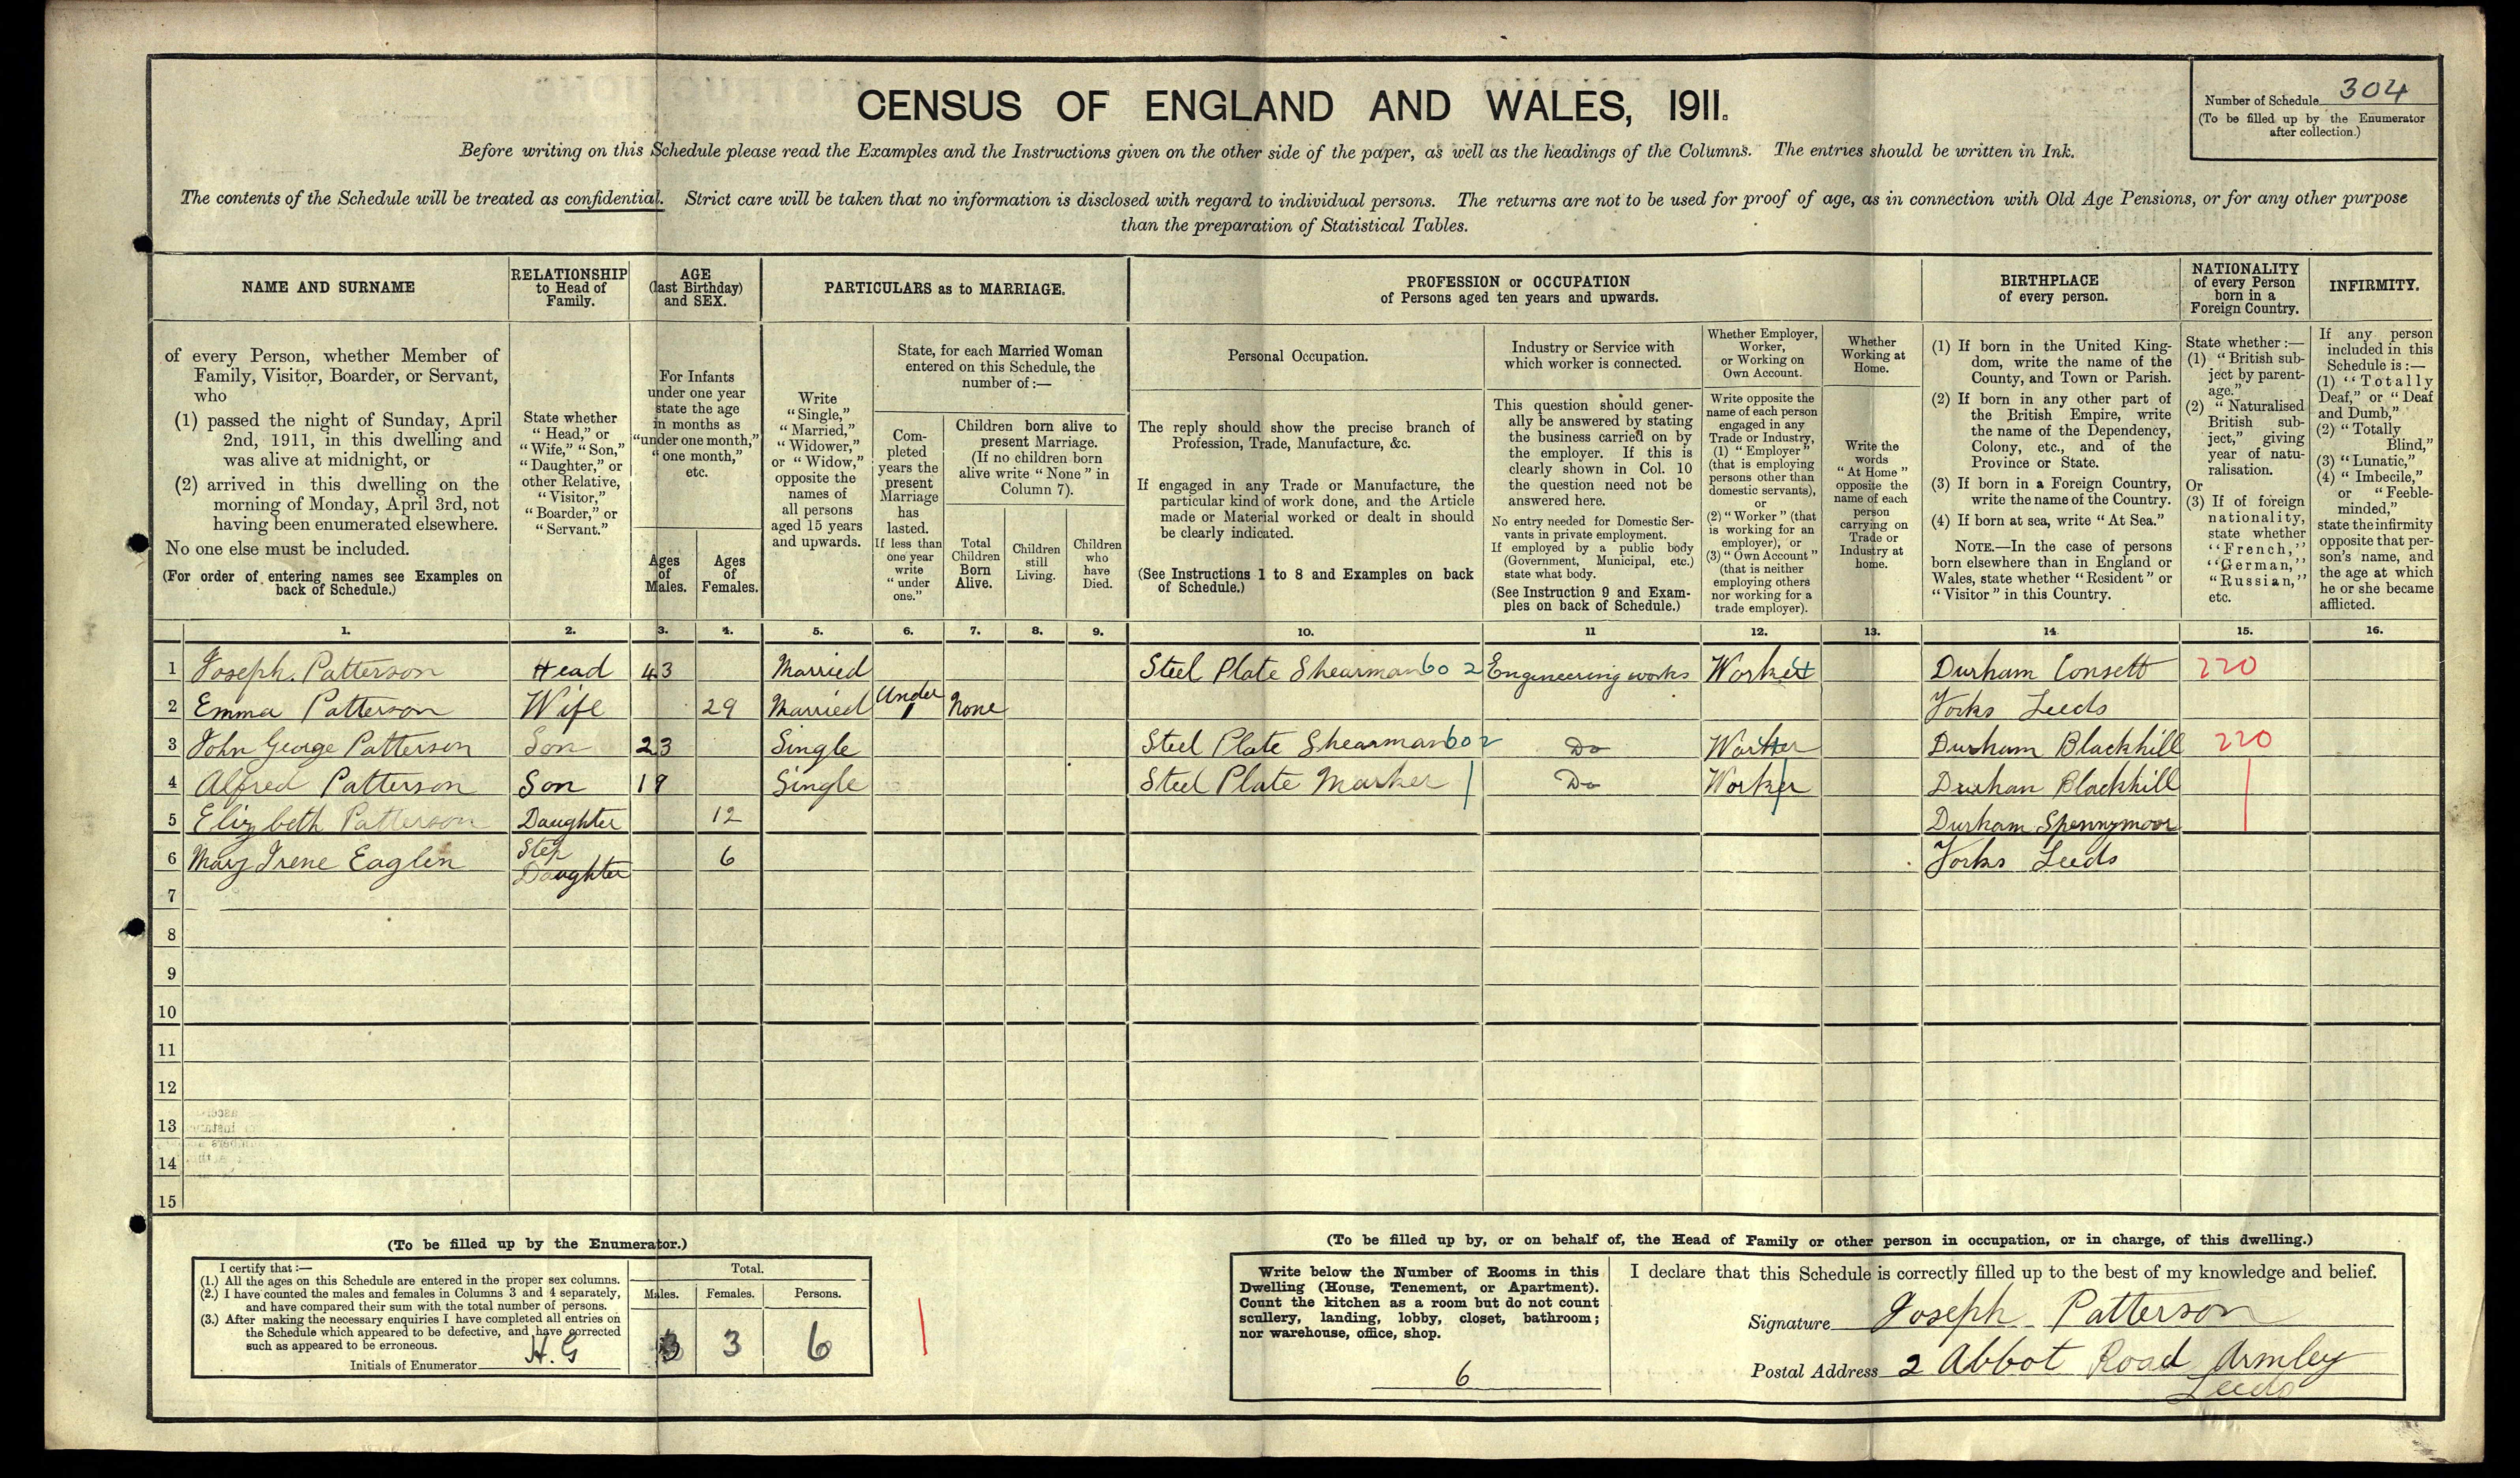 CENSUS OF ENGLAND AND WALES, 1911.
Number of Schedule 304
(To be filled up by the Enumerator
after collection.)
Before writing on this Schedule please read the Examples and the Instructions given on the other side of the paper, as well as the headings of the Columns. The entries should be written in Ink.
The contents of the Schedule will be treated as confidential. Strict care will be taken that no information is disclosed with regard to individual persons. The returns are not to be used for proof of age, as in connection with Old Age Pensions, or for any other purpose
than the preparation of Statistical Tables.
NAME AND SURNAME
of every Person, whether Member of
Family, Visitor, Boarder, or Servant,
who
(1) passed the night of Sunday, April
2nd, 1911, in this dwelling and
was alive at midnight, or
(2) arrived in this dwelling on the
morning of Monday, April 3rd, not
having been enumerated elsewhere.
No one else must be included.
(For order of entering names see Examples on
back of Schedule.)
RELATIONSHIP
to Head of
Family.
State whether
"Head," or
"Wife," "Son,"
"Daughter," or
other Relative,
"Visitor,"
"Boarder," or
"Servant."
AGE
(last Birthday)
and SEX.
For Infants
under one year
state the age
in months as
"under one month,"
"one month,"
etc.
Ages
of
Males.
Ages
of
Females.
PARTICULARS as to MARRIAGE.
Write
"Single,"
"Married,"
"Widower,"
or "Widow,"
opposite the
names of
all persons
aged 15 years
and upwards.
State, for each Married Woman
entered on this Schedule, the
number of:—
Com-
pleted
years the
present
Marriage
has
lasted.
If less than
one year
write
"under
one."
Children born alive to
present Marriage.
(If no children born
alive write "None" in
Column 7).
Total
Children
Born
Alive.
Children
still
Living.
Children
who
have
Died.
PROFESSION or OCCUPATION
of Persons aged ten years and upwards.
Personal Occupation.
The reply should show the precise branch of
Profession, Trade, Manufacture, &c.
If engaged in any Trade or Manufacture, the
particular kind of work done, and the Article
made or Material worked or dealt in should
be clearly indicated.
(See Instructions 1 to 8 and Examples on back
of Schedule.)
Industry or Service with
which worker is connected.
This question should gener-
ally be answered by stating
the business carried on by
the employer. If this is
clearly shown in Col. 10
the question need not be
answered here.
No entry needed for Domestic Ser-
vants in private employment.
If employed by a public body
(Government, Municipal, etc.)
state what body.
(See Instruction 9 and Exam-
ples on back of Schedule.)
Whether Employer,
Worker,
or Working on
Own Account.
Write opposite the
name of each person
engaged in any
Trade or Industry,
(1) "Employer"
(that is employing
persons other than
domestic servants),
or
(2) "Worker" (that
is working for an
employer), or
(3) "Own Account"
(that is neither
employing others
nor working for a
trade employer).
Whether
Working at
Home.
Write the
words
"At Home"
opposite the
name of each
person
carrying on
Trade or
Industry at
home.
BIRTHPLACE
of every person.
(1) If born in the United King-
dom, write the name of the
County, and Town or Parish.
(2) If born in any other part of
the British Empire, write
the name of the Dependency,
Colony, etc., and of the
Province or State.
(3) If born in a Foreign Country,
write the name of the Country.
(4) If born at sea, write "At Sea."
NOTE.—In the case of persons
born elsewhere than in England or
Wales, state whether "Resident" or
"Visitor" in this Country.
NATIONALITY
of every Person
born in a
Foreign Country.
State whether:—
(1) "British sub-
ject by parent-
age."
(2) "Naturalised
British sub-
ject," giving
year of natu-
ralisation.
Or
(3) If of foreign
nationality,
state whether
"French,"
"German,"
"Russian,"
etc.
INFIRMITY.
If any person
included in this
Schedule is:—
(1) "Totally
Deaf," or "Deaf
and Dumb,"
(2) "Totally
Blind,"
(3) "Lunatic,"
(4) "Imbecile,"
or "Feeble-
minded,"
state the infirmity
opposite that per-
son's name, and
the age at which
he or she became
afflicted.
1. 2. 3. 4. 5. 6. 7. 8. 9. 10. 11 12. 13. 14. 15. 16.
1 Joseph Patterson Head 43 Married Steel Plate Shearman 602 Engineering works Worker Durham Consett 220
2 Emma Patterson Wife 29 Married Under 1 None Yorks Leeds
3 John George Patterson Son 23 Single Steel Plate Shearman 602 Do Worker Durham Blackhill 220
4 Alfred Patterson Son Single Steel Plate Marker Do Worker Durham Blackhill
5 Elizbeth Patterson Daughter 12 Durham Spennymoor
6 Mary Irene Eaglen Step Daughter 6 Yorks Leeds
7
8
9
10
11
12
13
14
15
(To be filled up by the Enumerator.)
I certify that:—
(1.) All the ages on this Schedule are entered in the proper sex columns.
(2.) I have counted the males and females in Columns 3 and 4 separately,
and have compared their sum with the total number of persons.
(3.) After making the necessary enquiries I have completed all entries on
the Schedule which appeared to be defective, and have corrected
such as appeared to be erroneous.
Initials of Enumerator H.G
Total.
Males. Females. Persons.
3 3 6
(To be filled up by, or on behalf of, the Head of Family or other person in occupation, or in charge, of this dwelling.)
Write below the Number of Rooms in this
Dwelling (House, Tenement, or Apartment).
Count the kitchen as a room but do not count
scullery, landing, lobby, closet, bathroom;
nor warehouse, office, shop.
6
I declare that this Schedule is correctly filled up to the best of my knowledge and belief.
Signature Joseph Patterson
Postal Address 2 Abbot Road Armley
Leeds